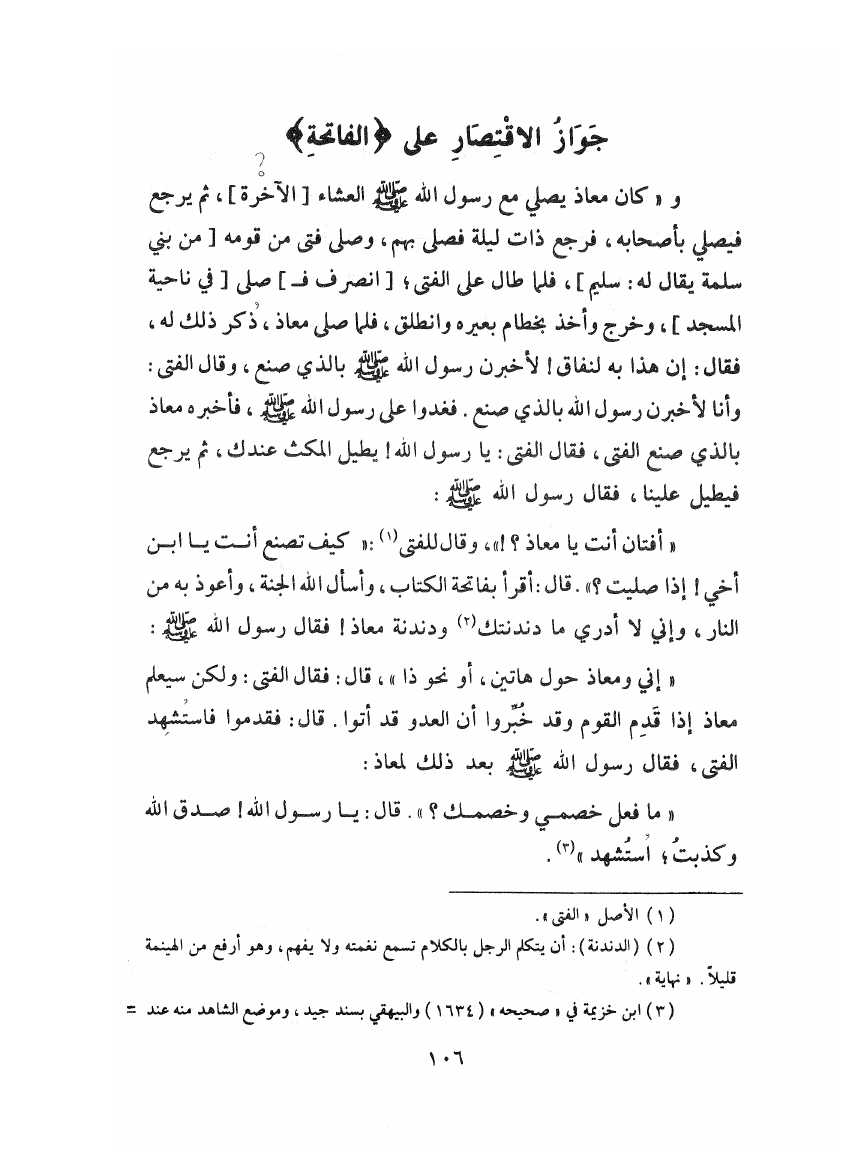 جَوَازُ الاقْتِصَارِ على ﴿الفاتحةِ﴾
?
و « كان معاذ يصلي مع رسول الله ﷺ العشاء [ الآخرة ] ، ثم يرجع
فيصلي بأصحابه ، فرجع ذات ليلة فصلى بهم ، وصلى فتى من قومه [ من بني
سلمة يقال له : سليم ] ، فلما طال على الفتى ؛ [ انصرف فـ ] صلى [ في ناحية
المسجد ] ، وخرج وأخذ بخطام بعيره وانطلق ، فلما صلى معاذ ، ذُكر ذلك له ،
فقال : إن هذا به لنفاق ! لأخبرن رسول الله ﷺ بالذي صنع ، وقال الفتى :
وأنا لأخبرن رسول الله بالذي صنع . فغدوا على رسول الله ﷺ ، فأخبره معاذ
بالذي صنع الفتى ، فقال الفتى : يا رسول الله ! يطيل المكث عندك ، ثم يرجع
فيطيل علينا ، فقال رسول الله ﷺ :
« أفتان أنت يا معاذ ؟ ! » ، وقال للفتى (١) : « كيف تصنع أنت يا ابن
أخي ! إذا صليت ؟ » . قال : أقرأ بفاتحة الكتاب ، وأسأل الله الجنة ، وأعوذ به من
النار ، وإني لا أدري ما دندنتك (٢) ودندنة معاذ ! فقال رسول الله ﷺ :
« إني ومعاذ حول هاتين ، أو نحو ذا » ، قال : فقال الفتى : ولكن سيعلم
معاذ إذا قَدِم القوم وقد خُبِّروا أن العدو قد أتوا . قال : فقدموا فاستُشهِد
الفتى ، فقال رسول الله ﷺ بعد ذلك لمعاذ :
« ما فعل خصمي وخصمك ؟ » . قال : يا رسول الله ! صدق الله
وكذبتُ ؛ اُستُشهد » (٣) .
(١) الأصل « الفتى » .
(٢) (الدندنة) : أن يتكلم الرجل بالكلام تسمع نغمته ولا يفهم ، وهو أرفع من الهينمة
قليلاً . « نهاية » .
(٣) ابن خزيمة في « صحيحه » (١٦٣٤) والبيهقي بسند جيد ، وموضع الشاهد منه عند =
١٠٦